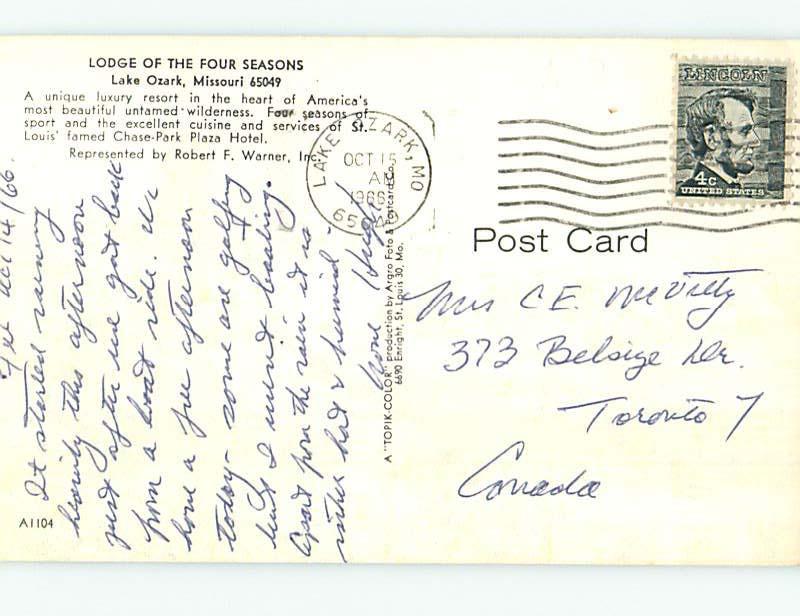 LODGE OF THE FOUR SEASONS
Lake Ozark, Missouri 65049
A unique luxury resort in the heart of America's
most beautiful untamed wilderness. Four seasons of
sport and the excellent cuisine and services of St.
Louis' famed Chase-Park Plaza Hotel.
Represented by Robert F. Warner, Inc.
LAKE OZARK, MO
OCT 15
AM
1966
LINCOLN
4c
UNITED STATES
Post Card
Oct 14/66.
It started raining
heavily this afternoon
just after we got back
from a boat ride. We
have a free afternoon
today - some are golfing
but I went boating.
Apart from the rain it is
rather hot & humid -
Love Hugh
A "TOPIK-COLOR" production by Argro Foto & Postcard Co.
6690 Enright, St. Louis 30, Mo.
Mrs C E. McVitty
373 Belsize Dr.
Toronto 7
Canada
A1104